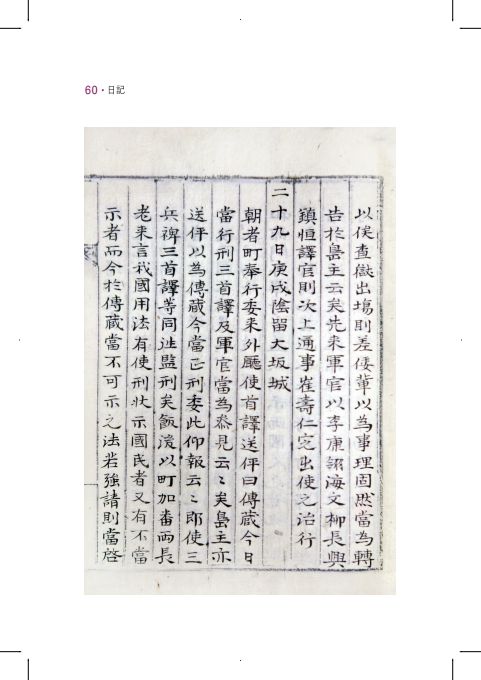 60 · 日記
以俟査獄出場則差倭輩以為事理固然當為轉
告於島主云矣先來軍官以李廉翊海文柳長興
鎭恒譯官則次上通事崔壽仁定出使之治行
二十九日庚戌陰留大坂城
朝者町奉行委來外廳使首譯送伻曰傳藏今日
當行刑三首譯及軍官當為叅見云〻矣島主亦
送伻以為傳藏今當正刑委此仰報云〻即使三
兵裨三首譯等同徃監刑矣飯後以町加番兩長
老來言我國用法有使刑狀示國民者又有不當
示者而今於傳藏當不可示之法若强請則當啓